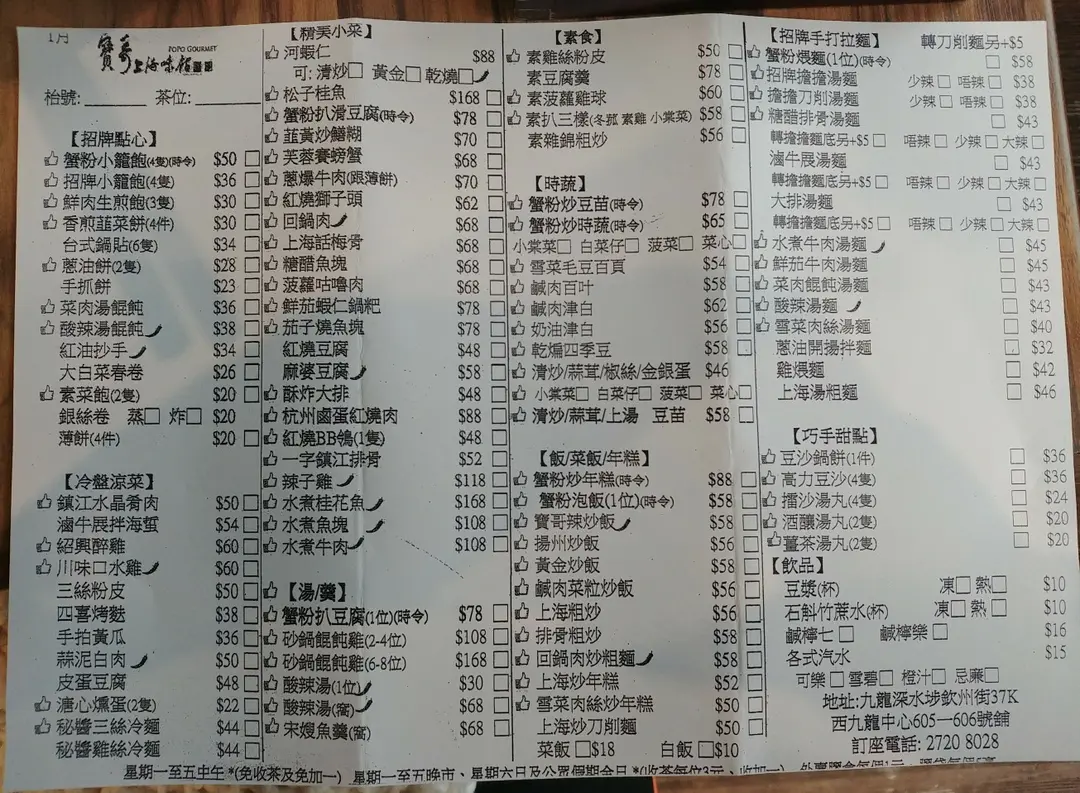 1月
寶哥上海味館
POPO GOURMET
枱號: 茶位:
【招牌點心】
蟹粉小籠飽(4隻)(時令) $50
招牌小籠飽(4隻) $36
鮮肉生煎飽(3隻) $30
香煎韮菜餅(4件) $30
台式鍋貼(6隻) $34
蔥油餅(2隻) $28
手抓餅 $23
菜肉湯餛飩 $36
酸辣湯餛飩 $38
紅油抄手 $34
大白菜春卷 $26
素菜飽(2隻) $20
銀絲卷 蒸□ 炸□ $20
薄餅(4件) $20
【冷盤涼菜】
鎮江水晶肴肉 $50
滷牛展拌海蜇 $54
紹興醉雞 $60
川味口水雞 $60
三絲粉皮 $50
四喜烤麩 $38
手拍黃瓜 $36
蒜泥白肉 $50
皮蛋豆腐 $48
溏心燻蛋(2隻) $22
秘醬三絲冷麵 $44
秘醬雞絲冷麵 $44
【精美小菜】
河蝦仁 $88
可: 清炒□ 黃金□ 乾燒□
松子桂魚 $168
蟹粉扒滑豆腐(時令) $78
韮黃炒鱔糊 $70
芙蓉賽螃蟹 $68
蔥爆牛肉(跟薄餅) $70
紅燒獅子頭 $62
回鍋肉 $68
上海話梅骨 $68
糖醋魚塊 $68
菠蘿咕嚕肉 $68
鮮茄蝦仁鍋粑 $78
茄子燒魚塊 $78
紅燒豆腐 $48
麻婆豆腐 $58
酥炸大排 $48
杭州鹵蛋紅燒肉 $88
紅燒BB鴿(1隻) $48
一字鎮江排骨 $52
辣子雞 $118
水煮桂花魚 $168
水煮魚塊 $108
水煮牛肉 $108
【湯/羹】
蟹粉扒豆腐(1位)(時令) $78
砂鍋餛飩雞(2-4位) $108
砂鍋餛飩雞(6-8位) $168
酸辣湯(1位) $30
酸辣湯(窩) $68
宋嫂魚羹(窩) $68
【素食】
素雞絲粉皮 $50
素豆腐羹 $78
素菠蘿雞球 $60
素扒三樣(冬菰 素雞 小棠菜) $58
素雜錦粗炒 $56
【時蔬】
蟹粉炒豆苗(時令) $78
蟹粉炒時蔬(時令) $65
小棠菜□ 白菜仔□ 菠菜□ 菜心□
雪菜毛豆百頁 $54
鹹肉百叶 $58
鹹肉津白 $62
奶油津白 $56
乾煸四季豆 $58
清炒/蒜茸/椒絲/金銀蛋 $46
小棠菜□ 白菜仔□ 菠菜□ 菜心□
清炒/蒜茸/上湯 豆苗 $58
【飯/菜飯/年糕】
蟹粉炒年糕(時令) $88
蟹粉泡飯(1位)(時令) $58
寶哥辣炒飯 $58
揚州炒飯 $56
黃金炒飯 $58
鹹肉菜粒炒飯 $56
上海粗炒 $56
排骨粗炒 $58
回鍋肉炒粗麵 $58
上海炒年糕 $52
雪菜肉絲炒年糕 $50
上海炒刀削麵 $50
菜飯 □$18 白飯 □$10
【招牌手打拉麵】 轉刀削麵另+$5
蟹粉煨麵(1位)(時令) □ $58
招牌擔擔湯麵 少辣□ 唔辣□ $38
擔擔刀削湯麵 少辣□ 唔辣□ $38
糖醋排骨湯麵 □ $43
轉擔擔麵底另+$5□ 唔辣□ 少辣□ 大辣□
滷牛展湯麵 □ $43
轉擔擔麵底另+$5□ 唔辣□ 少辣□ 大辣□
大排湯麵 □ $43
轉擔擔麵底另+$5□ 唔辣□ 少辣□ 大辣□
水煮牛肉湯麵 □ $45
鮮茄牛肉湯麵 □ $45
菜肉餛飩湯麵 □ $43
酸辣湯麵 □ $43
雪菜肉絲湯麵 □ $40
蔥油開揚拌麵 □ $32
雞煨麵 □ $42
上海湯粗麵 □ $46
【巧手甜點】
豆沙鍋餅(1件) □ $36
高力豆沙(4隻) □ $36
擂沙湯丸(4隻) □ $24
酒釀湯丸(2隻) □ $20
薑茶湯丸(2隻) □ $20
【飲品】
豆漿(杯) 凍□ 熱□ $10
石斛竹蔗水(杯) 凍□ 熱□ $10
鹹檸七□ 鹹檸樂□ $16
各式汽水 $15
可樂□ 雪碧□ 橙汁□ 忌廉□
地址:九龍深水埗欽州街37K
西九龍中心605一606號舖
訂座電話: 2720 8028
星期一至五中午 *(免收茶及免加一) 星期一至五晚市、星期六日及公眾假期全日 *(收茶每位3元、收加一)